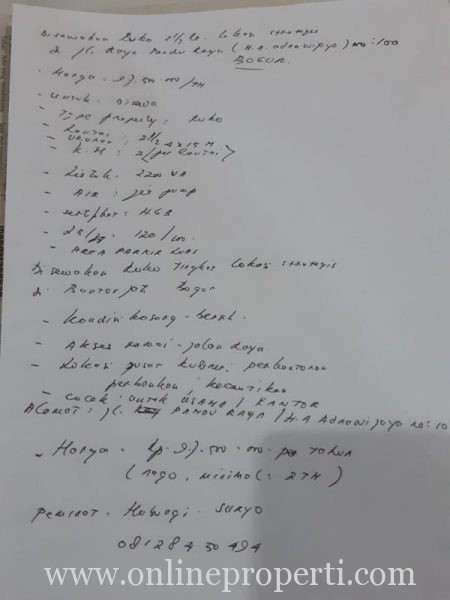 Disewakan Ruko 2 1/2 Lt. Lokasi strategis
di jl. Raya Pandu Raya (H.A. Adnawijaya) no: 100
BOGOR.
- Harga: 27.500.000/TH
- untuk: Disewa
- Type property: Ruko
- Lantai: 2 1/2
- ukuran: 4 x 15 M
- K.M: 2 (per lantai)
- Listrik: 2200 VA
- Air: jet pump
- sertifikat: HGB
- LB/LT: 120/100.
- AREA PARKIR LUAS
Disewakan Ruko Tingkat Lokasi strategis
di Bantarjati Bogor
- Kondisi kosong - Bersih.
- Akses ramai - jalan Raya.
- Lokasi pusat kuliner, perkantoran
perbankan, kecantikan
- Cocok: untuk USAHA / KANTOR
Alamat: jl. PANDU RAYA / H.A Adnawijaya no: 10
- Harga: Rp. 27.500.000 Tahun
(nego, minimal: 2 TH)
peminat. Hubungi. SURYO
08128430494
www.onlineproperti.com